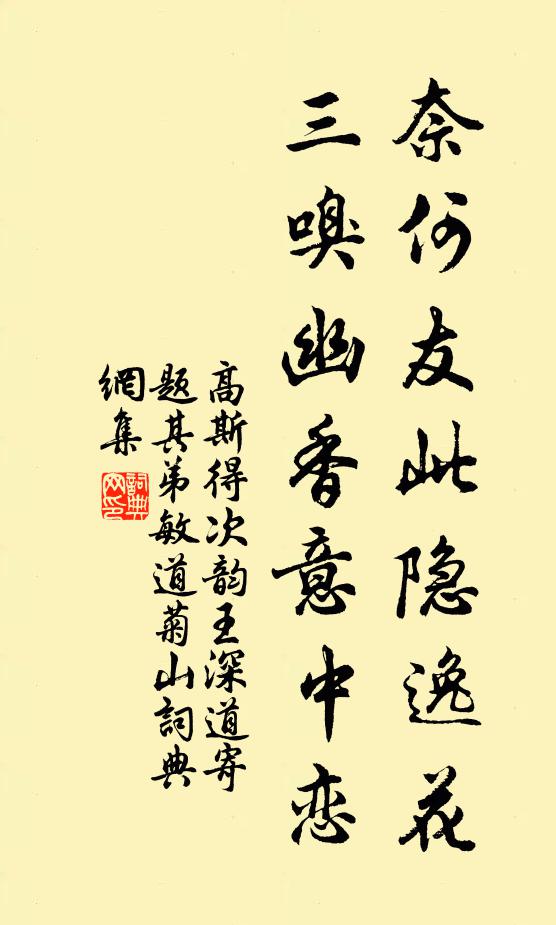 奈何友此隐逸花
三嗅幽香意中恋
高斯得次韵王深道寄
题其弟敏道菊山詞典
網集
詞典
网印